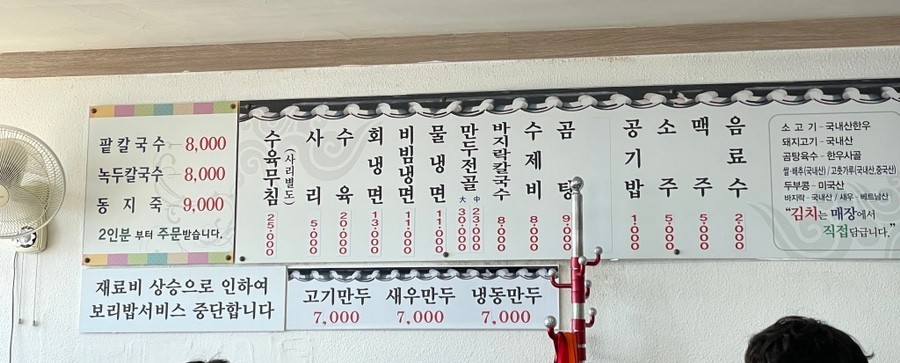 팥칼국수 8,000
녹두칼국수 8,000
동지죽 9,000
2인분 부터 주문받습니다.
재료비 상승으로 인하여
보리밥서비스 중단합니다
수육무침 (사리별도) 25,000
사리 5,000
수육 20,000
회냉면 13,000
비빔냉면 11,000
물냉면 11,000
만두전골 大 30,000 中 23,000
바지락칼국수 8,000
수제비 8,000
곰탕
공기밥 1,000
소주 5,000
맥주 5,000
음료수 2,000
고기만두 새우만두 냉동만두
7,000 7,000 7,000
소고기-국내산한우
돼지고기-국내산
곰탕육수-한우사골
쌀·배추(국내산) / 고춧가루(국내산,중국산)
두부콩-미국산
바지락-국내산 / 새우-베트남산
"김치는 매장에서
직접담급니다."